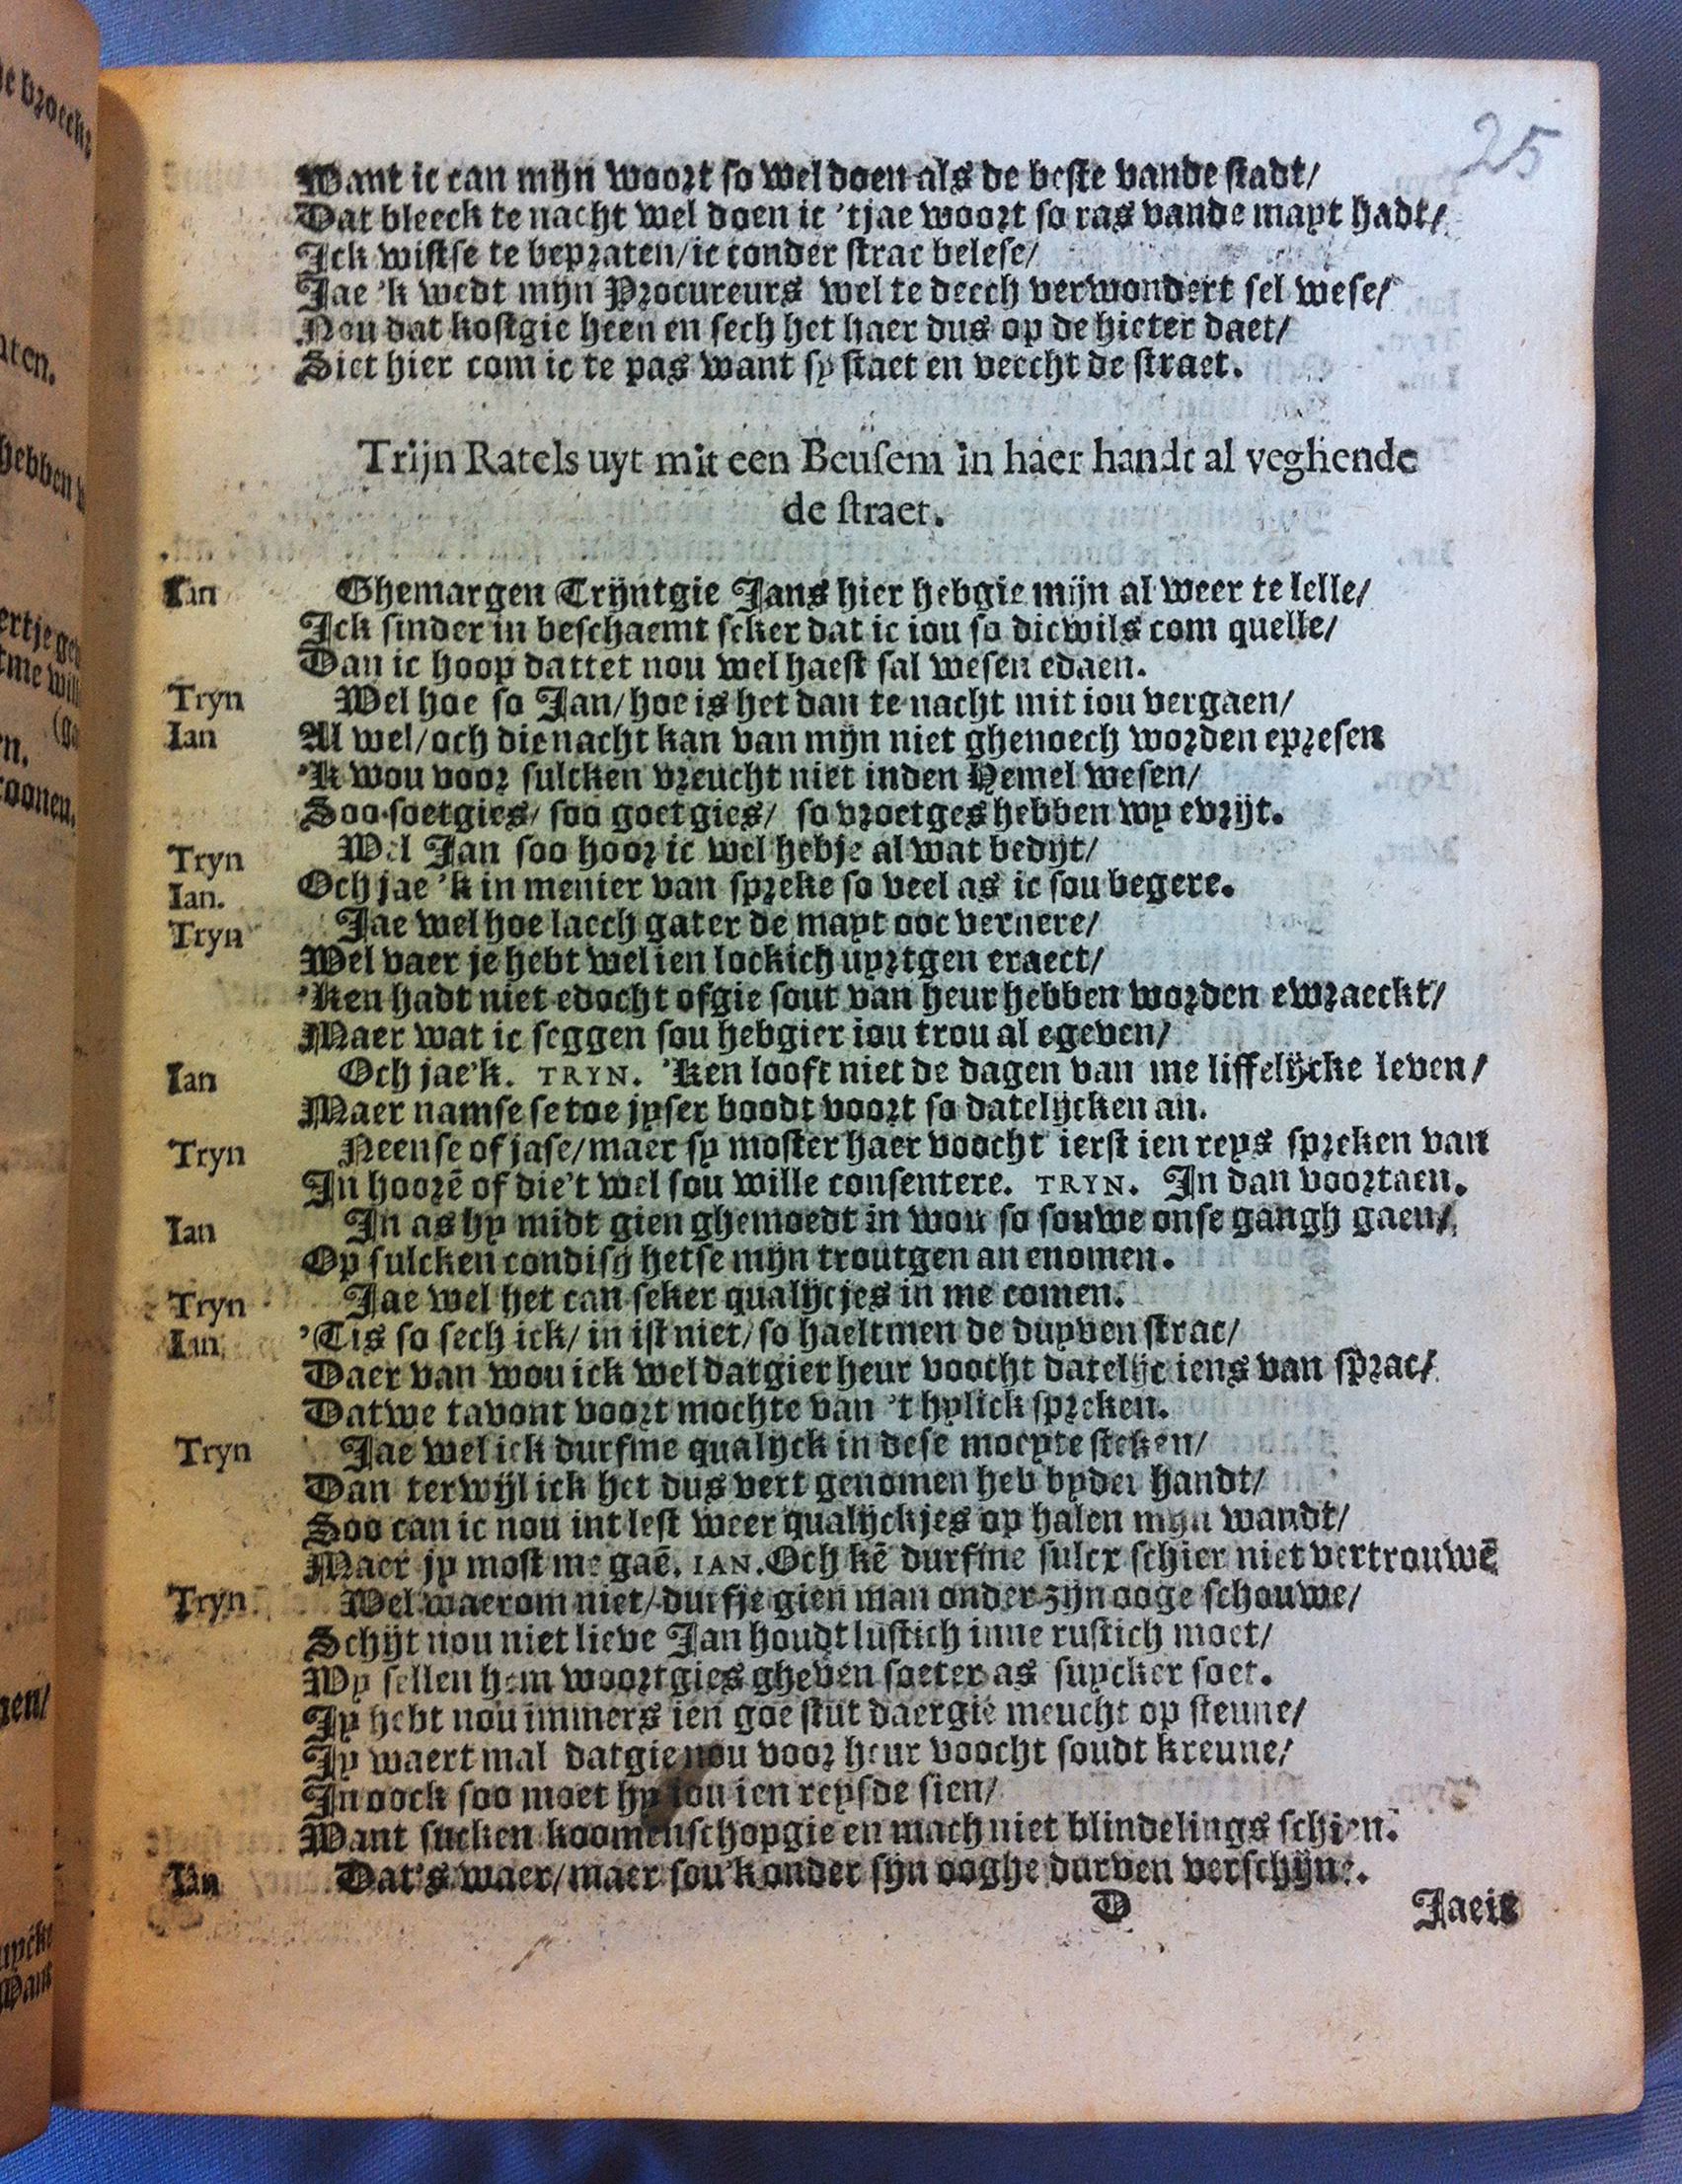 25
Want ic can mijn woort so wel doen als de beste vande stadt/
Dat bleeck te nacht wel doen ic 'tjae woort so ras vande mayt hadt/
Ick wistse te bepraten/ic conder strac belese/
Jae 'k wedt mijn Procureurs wel te deech verwondert sel wese/
Nou dat kostgie heen en sech het haer dus op de hieter daet/
Siet hier com ic te pas want sy staet en veecht de straet.
Trijn Ratels uyt mit een Beusem in haer handt al veghende
de straet.
Ian Ghemargen Trijntgie Jans hier hebgie mijn al weer te lelle/
Ick sinder in beschaemt seker dat ic iou so dicwils com quelle/
Dan ic hoop dattet nou wel haest sal wesen edaen.
Tryn Wel hoe so Jan/hoe is het dan te nacht mit iou vergaen/
Ian Al wel/och die nacht kan van mijn niet ghenoech worden epresen
'K wou voor sulcken vreucht niet inden Hemel wesen/
Soo soetgies/ soo goetgies/ so vroetges hebben wy evrijt.
Tryn Wel Jan soo hoor ic wel hebje al wat bedijt/
Ian. Och jae 'k in menier van spreke so veel as ic sou begere.
Tryn Jae wel hoe laech gater de mayt ooc vernere/
Wel vaer je hebt wel ien lockich uyrtgen eraect/
'Ken hadt niet edocht ofgie sout van heur hebben worden ewraeckt/
Maer wat ic seggen sou hebgier iou trou al egeven/
Ian Och jae'k. TRYN. 'Ken looft niet de dagen van me liffelijcke leven/
Maer namse se toe jyser boodt voort so datelijcken an.
Tryn Neense of jase/maer sy moster haer voocht ierst ien reys spreken van
In hoorē of die't wel sou wille consentere. TRYN. In dan voortaen.
Ian In as hy midt gien ghemoedt in wou so souwe onse gangh gaen/
Op sulcken condisy hetse mijn troutgen an enomen.
Tryn Jae wel het can seker qualijcjes in me comen.
Ian 'Tis so sech ick/ in ist niet/so haeltmen de duyven strac/
Daer van wou ick wel datgier heur voocht datelijc iens van sprac/
Datwe tavont voort mochte van 't hylick spreken.
Tryn Jae wel ick durfme qualijck in dese moeyte steken/
Dan terwijl ick het dus vert genomen heb byder handt/
Soo can ic nou int lest weer qualijckjes op halen mijn wandt/
Maer jy most me gaē. IAN. Och kē durfme sulcx schier niet vertrouwē
Tryn Wel waerom niet/ durfje gien man onder zijn ooge schouwe/
Schijt nou niet lieve Jan houdt lustich inne rustich moet/
Wy sellen hem woortgies gheven soeter as suycker soet.
Jy hebt nou immers ien goe stut daergie meucht op steune/
Jy waert mal datgie nou voor heur voocht soudt kreune/
In oock soo moet hy iou ien reysde sien/
Want sucken koomenschopgie en mach niet blindelings schien.
Ian Dat's waer/maer sou'k onder sijn ooghe durven verschijne.
D Jaeic